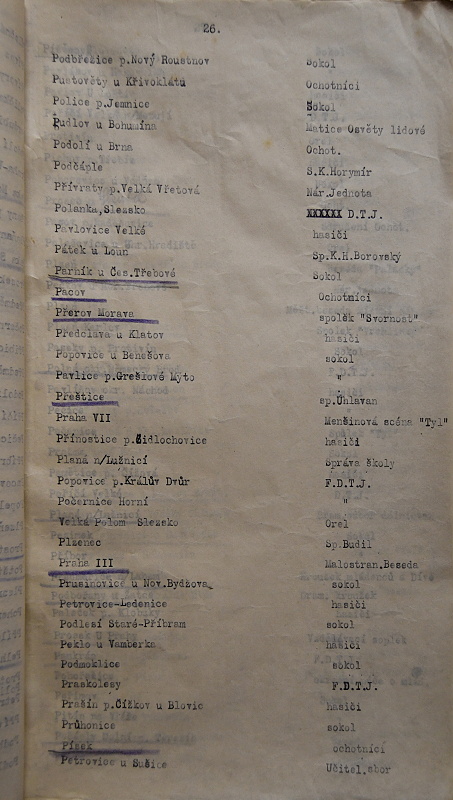 26.
Podbřežice p.Nový Rousínov Sokol
Pustověty u Křivoklátu Ochotníci
Police p.Jemnice Sokol
Pudlov u Bohumína Matice Osvěty lidové
Podolí u Brna Ochot.
Podčáple S.K.Horymír
Přívraty p.Velká Vřetová Nár.Jednota
Polanka,Slezsko XXXXXX D.T.J.
Pavlovice Velké hasiči
Pátek u Loun Sp.K.H.Borovský
Parník u Čes.Třebové Sokol
Pacov Ochotníci
Přerov Morava spolek "Svornost"
Předslava u Klatov hasiči
Popovice u Benešova sokol
Pavlice p.Grešlové Mýto "
Přeštice sp.Úhlavan
Praha VII Menšinová scéna "Tyl"
Přínostice p.Židlochovice hasiči
Planá n/Lužnicí Správa školy
Popovice p.Králův Dvůr F.D.T.J.
Počernice Horní "
Velká Polom Slezsko Orel
Plzenec Sp.Budil
Praha III Malostran.Beseda
Prusinovice u Nov.Bydžova sokol
Petrovice-Ledenice hasiči
Podlesí Staré-Příbram sokol
Peklo u Vamberka hasiči
Podmoklice sokol
Praskolesy F.D.T.J.
Prašín p.Čížkov u Blovic hasiči
Průhonice sokol
Písek ochotníci
Petrovice u Sušice Učitel.sbor